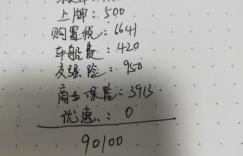 上牌：500
购置税：6641
车船税：420
交强险：950
商业保险：3913
优惠：0
90100